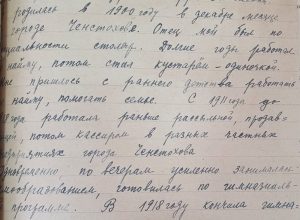 родилась в 1900 году в декабре месяце
городе Ченстохове. Отец мой был по
специальности столяр. Долгие годы работал
найму, потом стал кустарём-одиночкой.
Мне пришлось с раннего детства работать
найму, помогать семье. С 1911 года до
года работала раньше рассыльной, продав-
щей, потом кассиром в разных частных
предприятиях города Ченстохова
одновременно, по вечерам усиленно занималась
самообразованием, готовилась по гимназиаль
программе. В 1918 году кончила гимна-